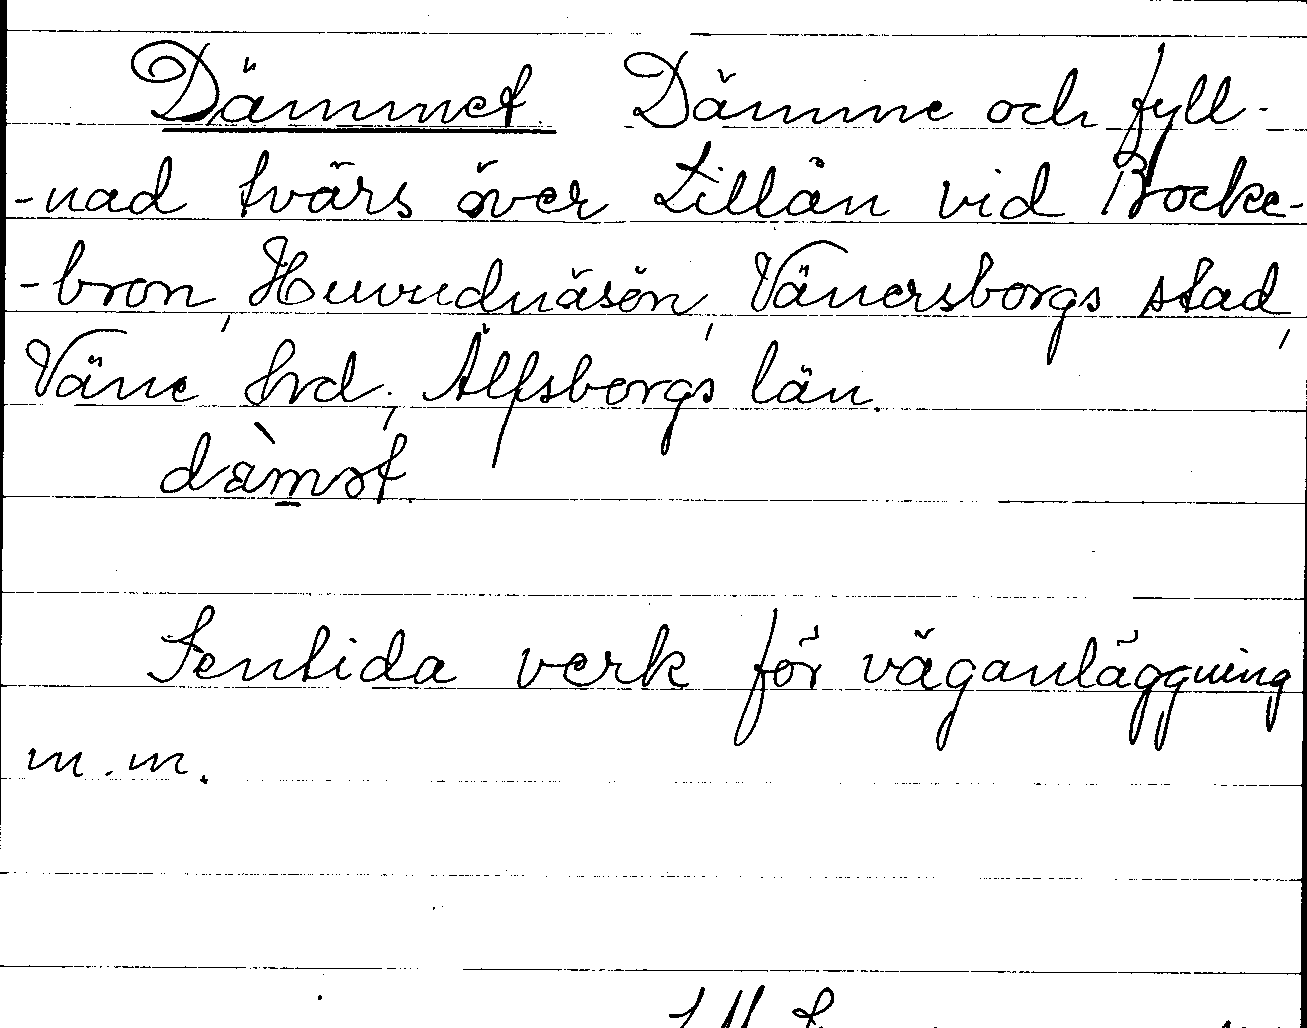 Dämmet. Dämme och fyll-
-nad tvärs över Lillån vid Brocke-
-bron, Huvudnäsön, Vänersborgs stad,
Väne hrd, Älfsborgs län.
dàmət.
Sentida verk för väganläggning
m.m.